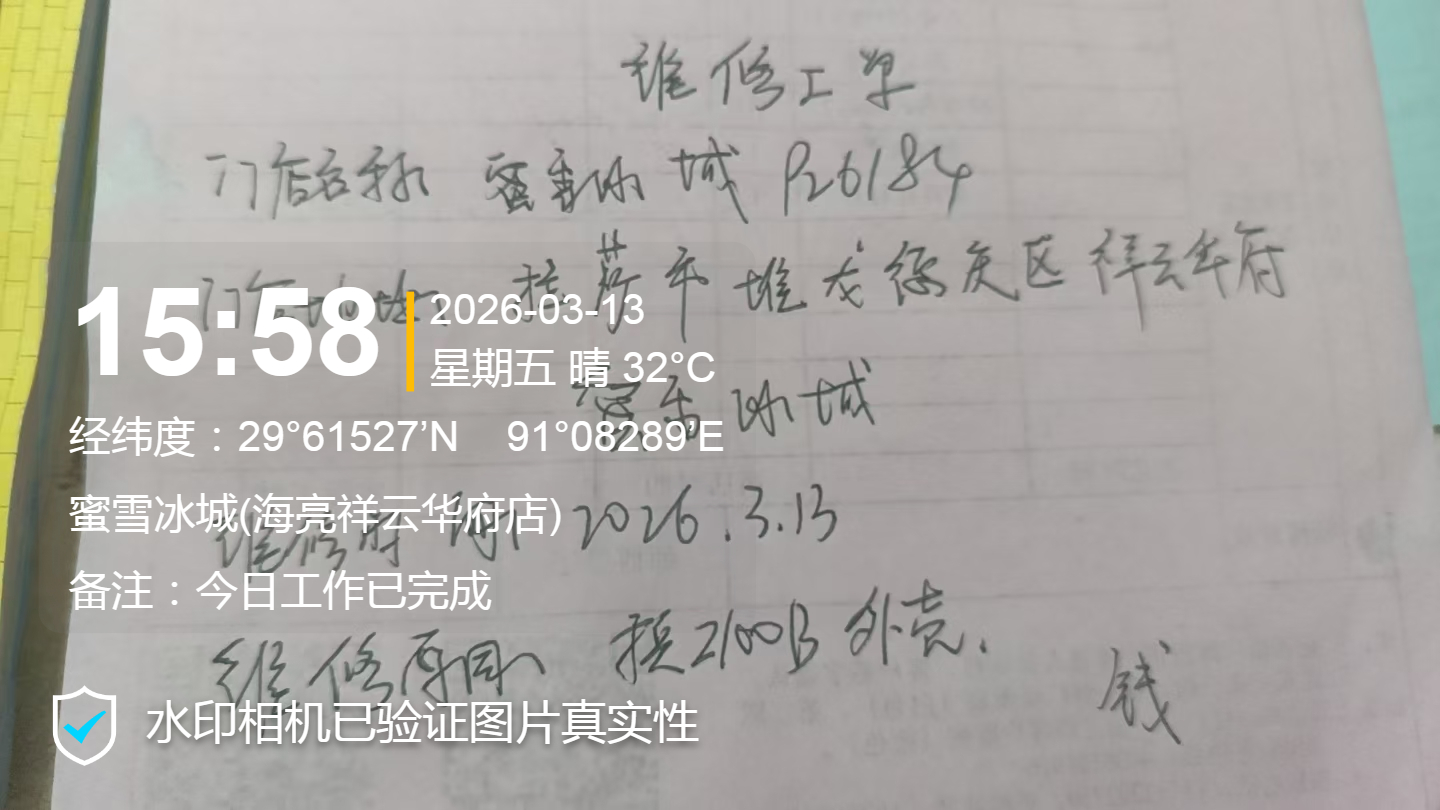 维修工单
门店名称 蜜雪冰城 P26184
门店地址 拉萨市堆龙德庆区祥云华府
蜜雪冰城
维修时间 2026.3.13
维修原因 换2100B外壳.
钱
15:58
2026-03-13
星期五 晴 32°C
经纬度：29°61527’N 91°08289’E
蜜雪冰城(海亮祥云华府店)
备注：今日工作已完成
水印相机已验证图片真实性